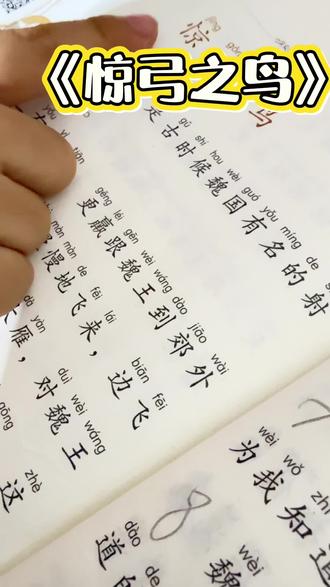 《惊弓之鸟》
jīng gōng
惊
鸟
gǔ shí hou wèi guó yǒu míng de
古时候魏国有名的射
yǒu yì tiān
gēng léi gēn wèi wáng dào jiāo wài
更羸跟魏王到郊外
màn màn de fēi lái biān fēi
慢地飞来，边飞
dà yàn duì wèi wáng
雁，对魏王
gōng zhè
这
7
wèi wǒ zhī
为我知道
8
dào de
道的